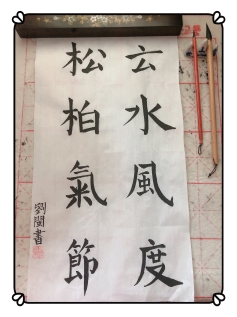 云水風度
松柏氣節
劉閩書